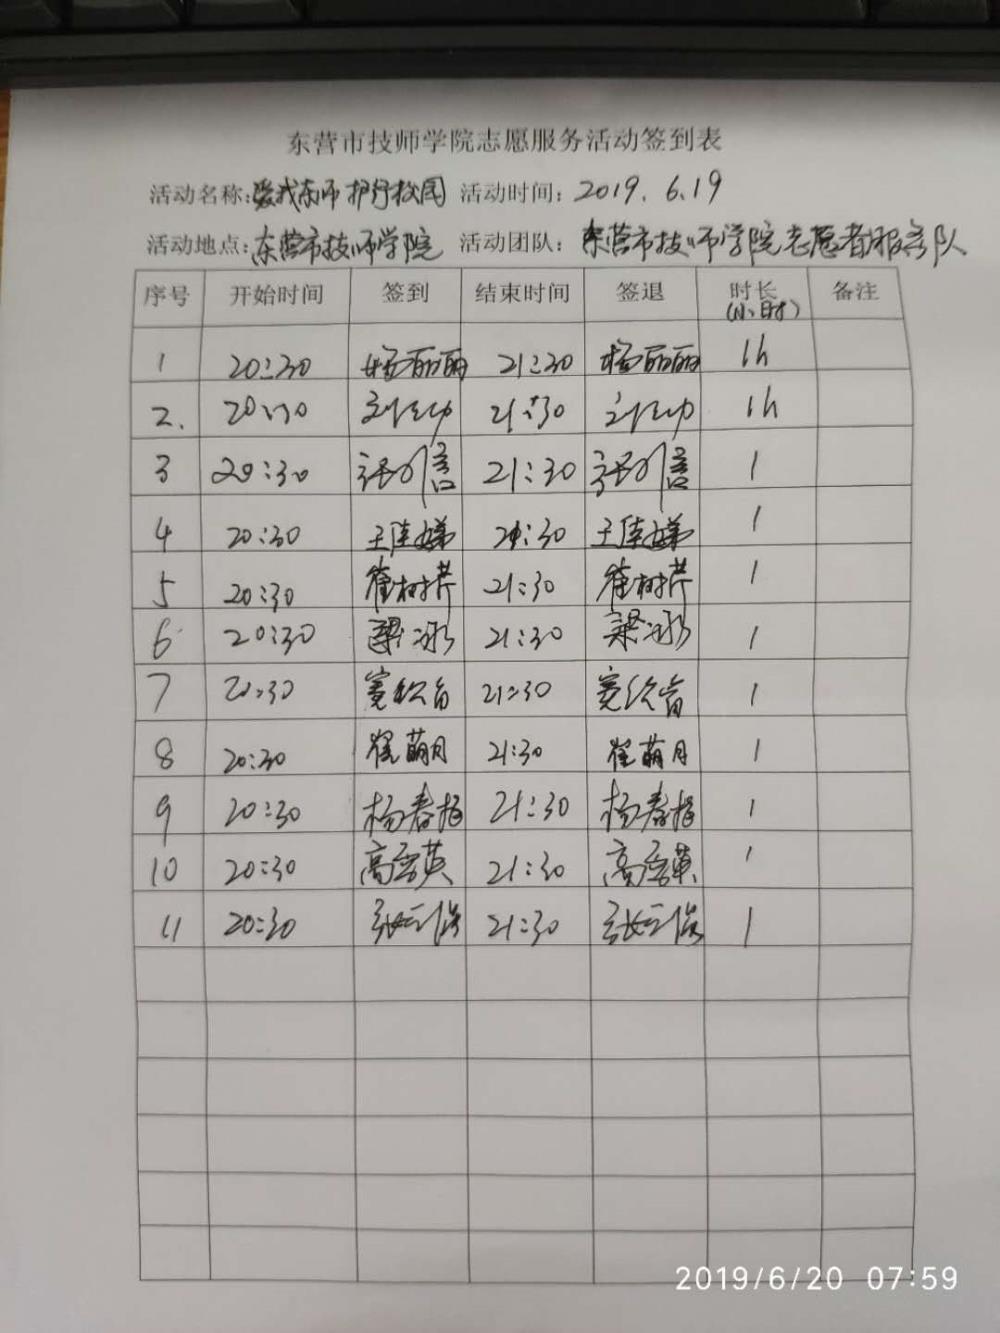 东营市技师学院志愿服务活动签到表
活动名称:爱我东师 护行校园 活动时间: 2019.6.19
活动地点: 东营市技师学院 活动团队: 东营市技师学院志愿者服务队
序号 开始时间 签到 结束时间 签退 时长(小时) 备注
1 20:30 杨丽丽 21:30 杨丽丽 1h
2. 20:30 21:30 1h
3 20:30 21:30 1
4 20:30 王佳 21:30 王佳 1
5 20:30 崔树芹 21:30 崔树芹 1
6 20:30 梁冰 21:30 梁冰 1
7 20:30 21:30 1
8 20:30 崔萌月 21:30 崔萌月 1
9 20:30 杨春梅 21:30 杨春梅 1
10 20:30 高秀英 21:30 高秀英 1
11 20:30 张 21:30 张 1
2019/6/20 07:59